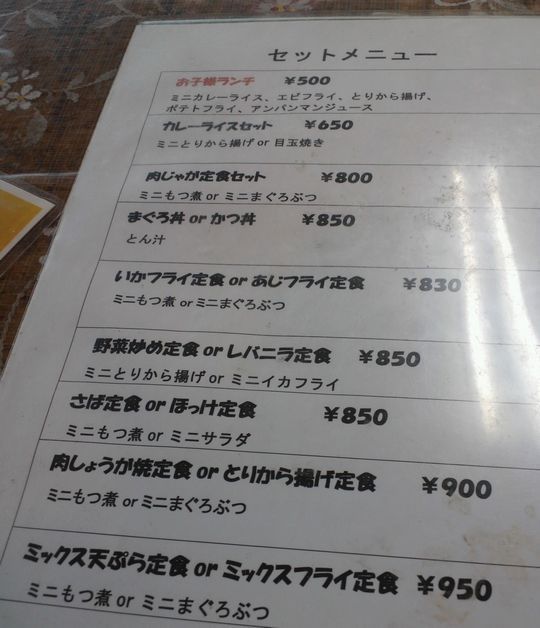 セットメニュー
お子様ランチ ￥500
ミニカレーライス、エビフライ、とりから揚げ、
ポテトフライ、アンパンマンジュース
カレーライスセット ￥650
ミニとりから揚げ or 目玉焼き
肉じゃが定食セット ￥800
ミニもつ煮 or ミニまぐろぶつ
まぐろ丼 or かつ丼 ￥850
とん汁
いかフライ定食 or あじフライ定食 ￥830
ミニもつ煮 or ミニまぐろぶつ
野菜炒め定食 or レバニラ定食 ￥850
ミニとりから揚げ or ミニイカフライ
さば定食 or ほっけ定食 ￥850
ミニもつ煮 or ミニサラダ
肉しょうが焼定食 or とりから揚げ定食 ￥900
ミニもつ煮 or ミニまぐろぶつ
ミックス天ぷら定食 or ミックスフライ定食 ￥950
ミニもつ煮 or ミニまぐろぶつ